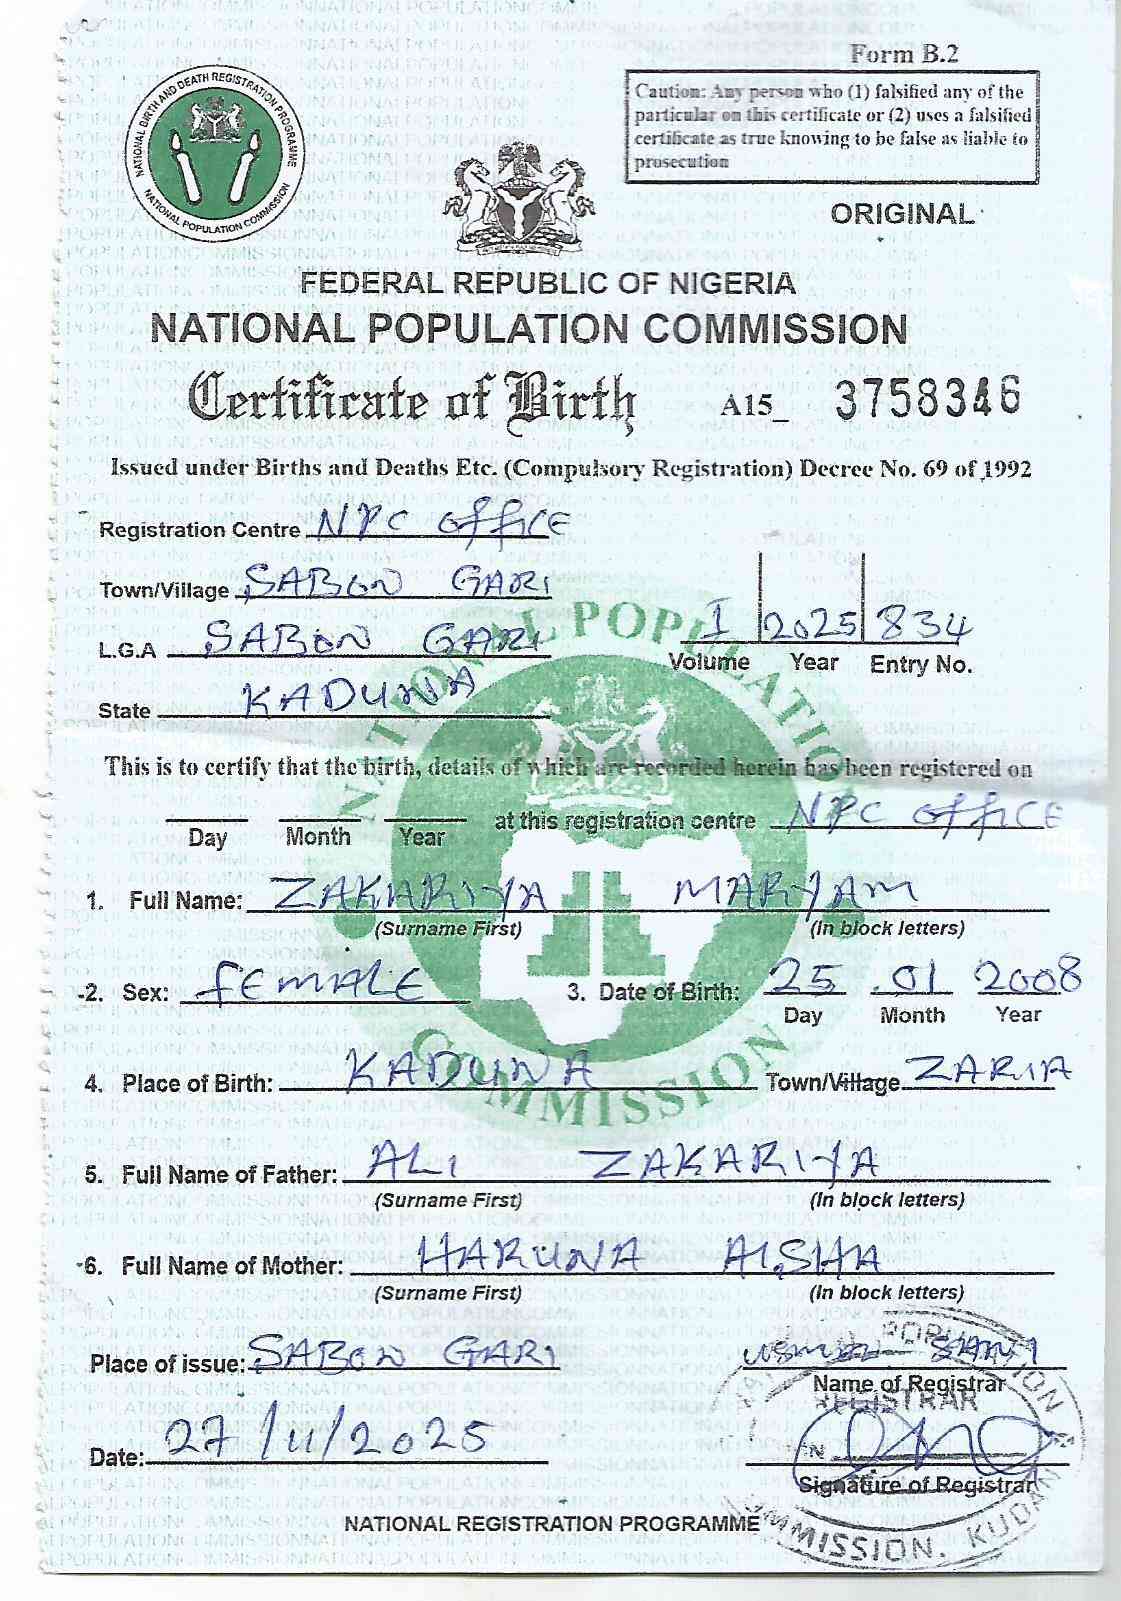 Form B.2
Caution: Any person who (1) falsified any of the
particular on this certificate or (2) uses a falsified
certificate as true knowing to be false as liable to
prosecution
NATIONAL BIRTH AND DEATH REGISTRATION PROGRAMME
NATIONAL POPULATION COMMISSION
ORIGINAL
FEDERAL REPUBLIC OF NIGERIA
NATIONAL POPULATION COMMISSION
Certificate of Birth A15_ 3758346
Issued under Births and Deaths Etc. (Compulsory Registration) Decree No. 69 of 1992
Registration Centre NPC OFFICE
Town/Village SABON GARI
L.G.A SABON GARI
I 2025 834
Volume Year Entry No.
State KADUNA
NATIONAL POPULATION COMMISSION
This is to certify that the birth, details of which are recorded herein has been registered on
Day Month Year at this registration centre NPC OFFICE
1. Full Name: ZAKARIYA MARYAM
(Surname First) (In block letters)
2. Sex: FEMALE 3. Date of Birth: 25 01 2008
Day Month Year
4. Place of Birth: KADUNA Town/Village ZARIA
5. Full Name of Father: ALI ZAKARIYA
(Surname First) (In block letters)
6. Full Name of Mother: HARUNA AISHA
(Surname First) (In block letters)
Place of issue: SABON GARI
Name of Registrar
REGISTRAR
Date: 27/11/2025
Signature of Registrar
NATIONAL REGISTRATION PROGRAMME